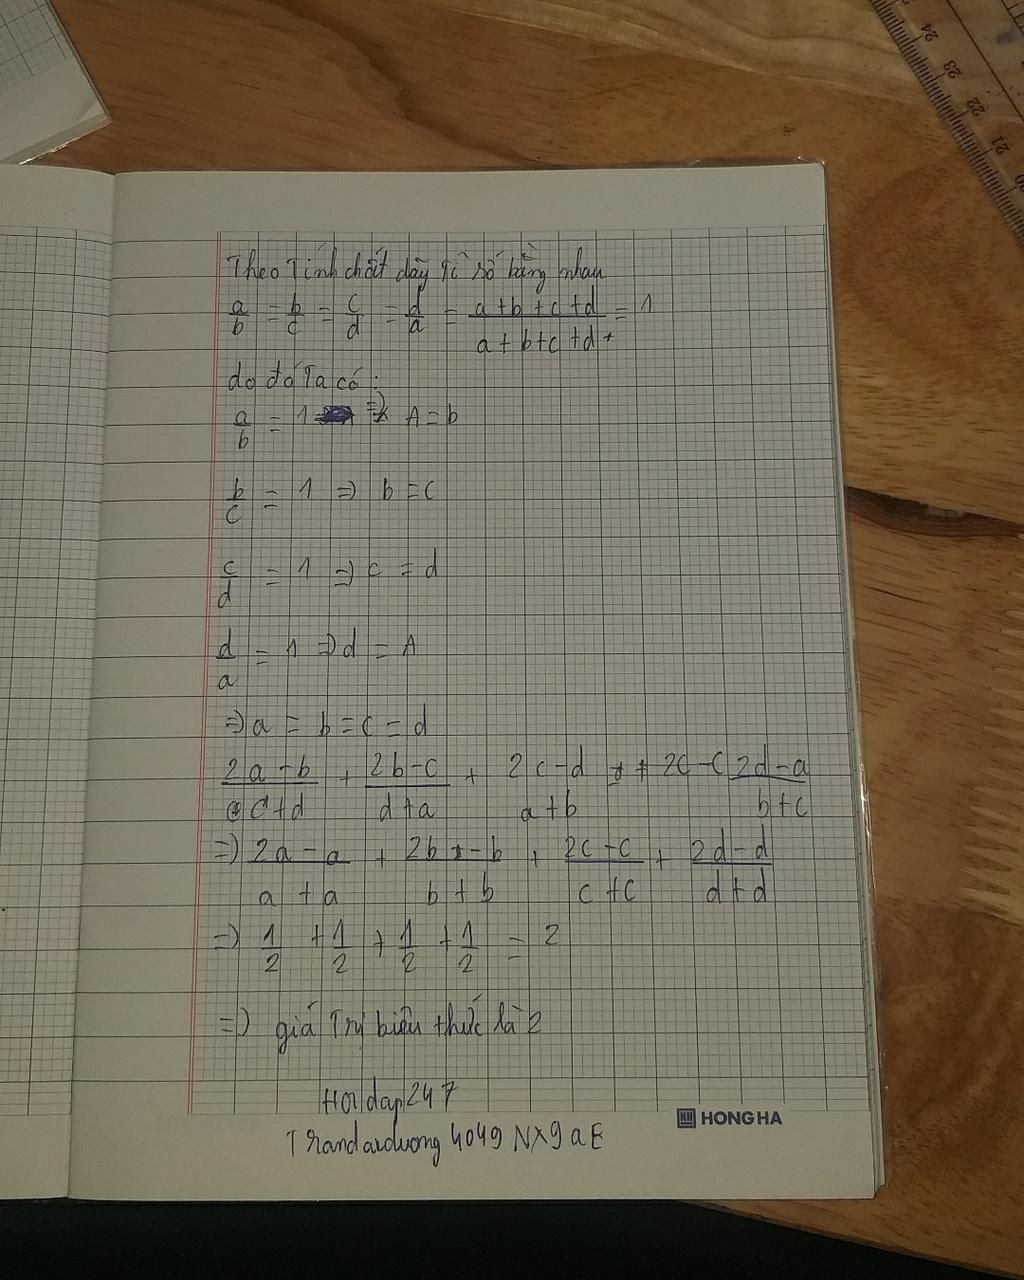 Theo Tính chất dãy tỉ số bằng nhau
a/b = b/c = c/d = d/a = (a+b+c+d)/(a+b+c+d) = 1
do đó Ta có:
a/b = 1 => A = b
b/c = 1 => b = c
c/d = 1 => c = d
d/a = 1 => d = A
=> a = b = c = d
(2a-b)/(c+d) + (2b-c)/(d+a) + 2c-d a+b + 2c-c (2d-a)/(b+c)
=> (2a-a)/(a+a) + (2b-b)/(b+b) + (2c-c)/(c+c) + (2d-d)/(d+d)
=> 1/2 + 1/2 + 1/2 + 1/2 = 2
=> giá Trị biểu thức là 2
Hoidap247
Trandaiduong4049 NX9aE
HH HONG HA
24
23
22
21
20